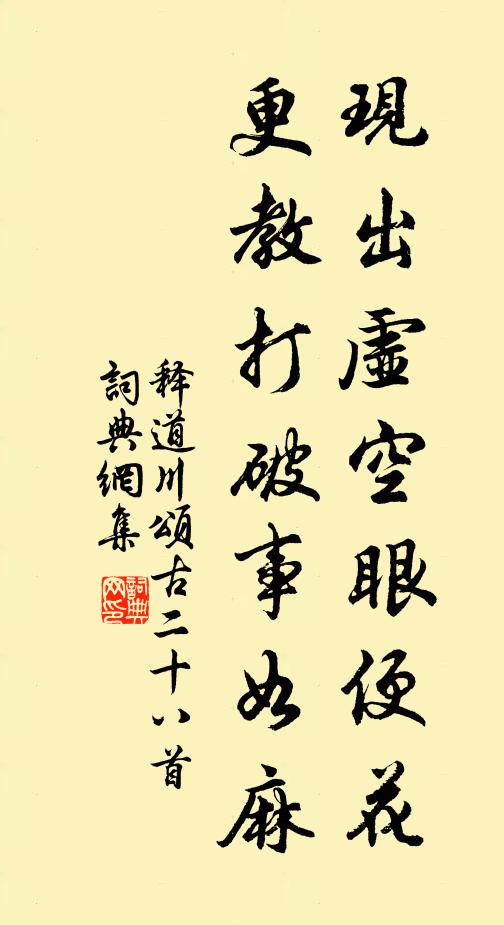 現出虛空眼便花
更教打破事如麻
释道川頌古二十八首
詞典網集
詞典网印